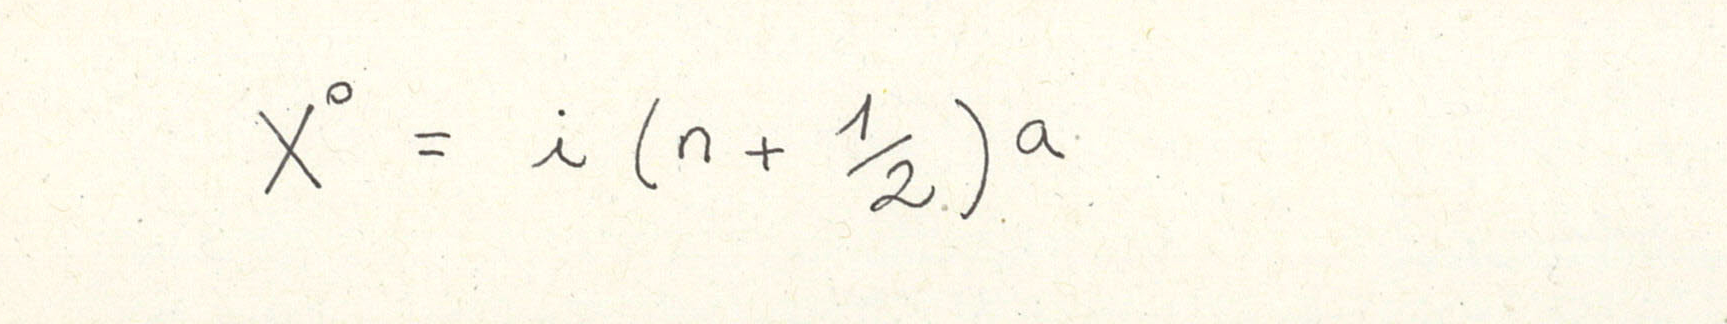 X° = i (n + 1/2) a